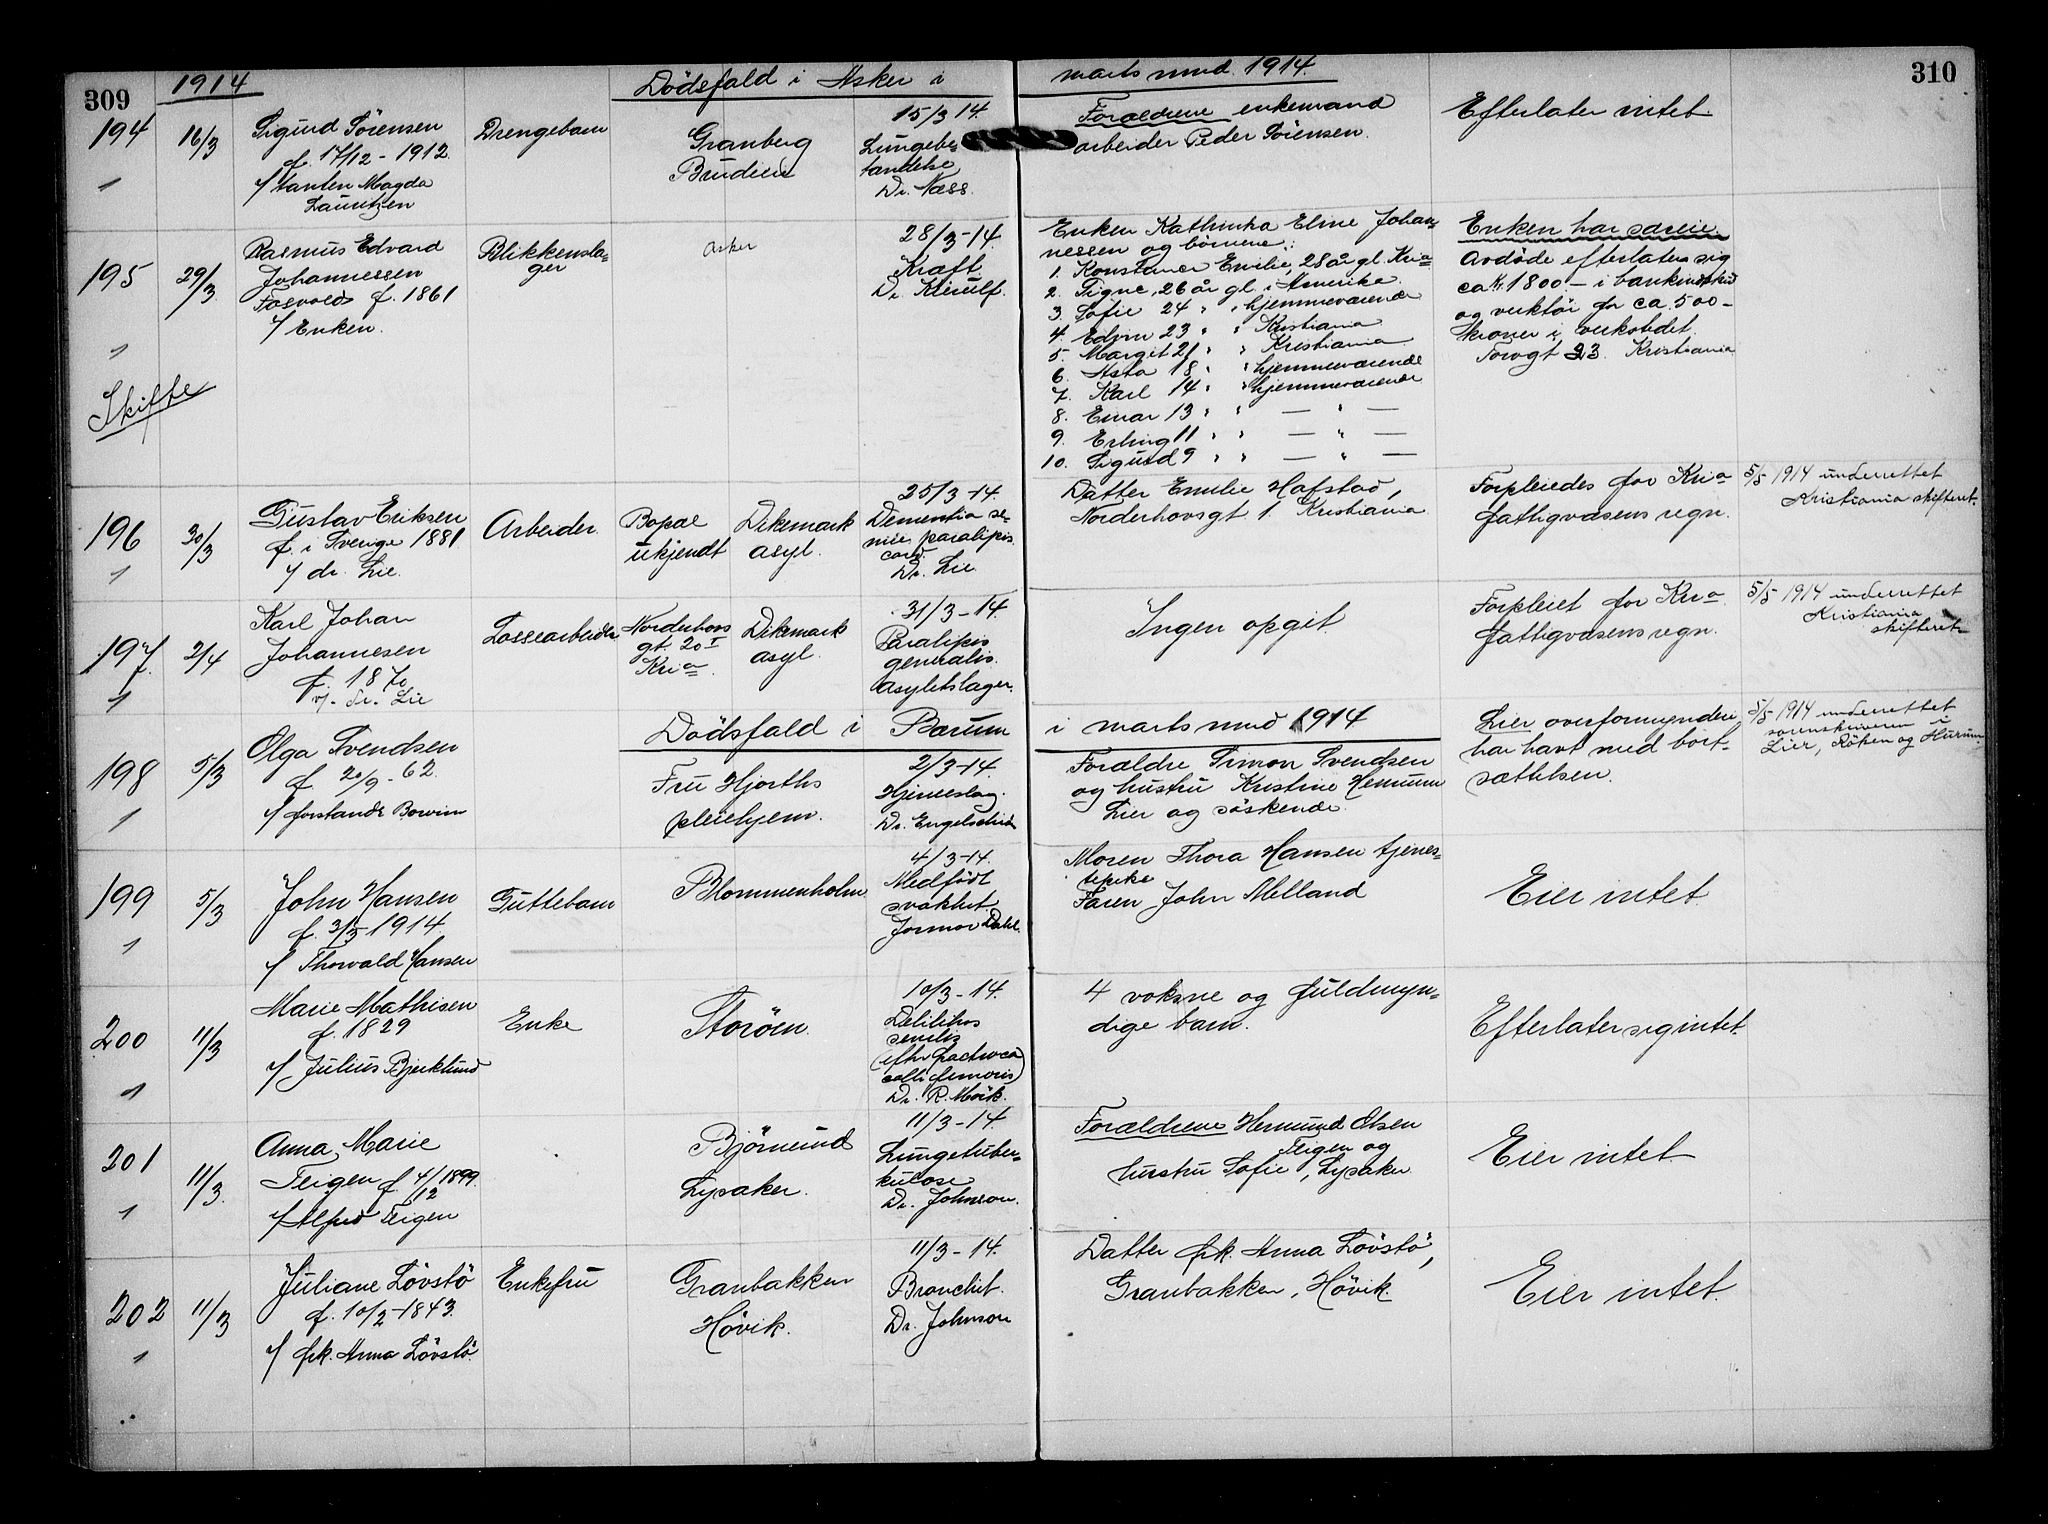 309
1914
Dødsfald i Asker i
marts mnd. 1914.
310
194
1
16/3
Sigurd Sörensen
f. 17/12 - 1912
v/ tanten Magda
Lauritzen
Drengebarn
Granberg
15/3 14.
Lungebe-
tændelse
Dr. Næss.
Forældrene enkemand
arbeider Peder Sörensen.
Efterlater intet
195
1
Skifte
29/3
Rasmus Edvard
Johannessen
f. 1861
v/ Enken.
Blikkensla-
ger
Asker
28/3-14.
Kræft
Dr. Kierulf.
Enken Kathinka Eline Johan-
nessen og börnene:
1. Konstance Emilie, 28 år gl. Kr.a
2. Signe, 26 år gl. i Amerika.
3. Sofie 24 " " hjemmeværende
4. Edvin 23 " " Kristiania
5. Margit 21 " " Kristiania
6. Asta 18 " " hjemmeværende
7. Karl 14 " " hjemmeværende
8. Einar 13 " " — " —
9. Erling 11 " " — " —
10. Sigurd 9 " " — " —
Enken har særeie.
Avdöde efterlater sig
ca kr 1800.- i bankinskud
og verktöi for ca. 500-
kroner i verkstedet.
Torvgt 23. Kristiania
196
1
30/3
Gustav Eriksen
f. i Sverige 1881
v/ dr. Lie.
Arbeider
Bopæl
ukjendt
Dikemark
asyl.
25/3-14.
Dementia se-
nile paralipis.
cord.
Dr. Lie
Datter Emilie Hafstad,
Norderhovsgt 1. Kristiania
Forpleiedes for Kr.a
fattigvæsens regn.
5/5 1914 underrettet
Kristiania skifteret.
197.
1
2/4
Karl Johan
Johannesen
f. 1870
v/. dr. Lie
Lossearbeider
Norderhovs
gt. 20 I
Kr.a
Dikemark
asyl.
31/3-14.
Paralipis
generalis.
Asylets læger.
Ingen opgit.
Forpleiet for Kr.a
fattigvæsens regn.
5/5 1914 underrettet
Kristiania
skifteret
Dødsfald i Bærum
i marts mnd 1914
198
1
5/3
Olga Svendsen
f. 20/9 - 62.
v/ forstandr
Fru Hjorths
pleiehjem.
2/3-14.
Hjerneslag.
Dr. Engelschiön
Forældre Simon Svendsen
og hustru Kristine Hennum
Lier og söskende.
Lier overformynderi
har havt med bort-
sættelsen.
5/5 1914 underrettet
sorenskriveren i
Lier, Röken og Hurum.
199
1
5/3
John Hansen
f. 3/3 1914
v/ Thorvald Hansen
Guttebarn
Blommenholm
4/3-14.
Medfödt
svakhet
Jormor Dahl.
Moren Thora Hansen tjenes-
tepike
Faren John Melland
Eier intet
200
1
11/3
Marie Mathisen
f. 1829
v/ Julius Bjerklund
Enke
Storöen.
10/3-14.
senilis
(efter fractura
colli femoris)
Dr. R. Mörk.
4 voksne og fuldmyn-
dige barn.
Efterlater sig intet.
201
1
11/3.
Anna Marie
Teigen f. 4/12 1899.
v/ Alfred Teigen
Björnsund
Lysaker.
11/3-14.
Lungetuber-
kulose
Dr. Johnson.
Forældrene Hermund Olsen
Teigen og
hustru Sofie, Lysaker
Eier intet
202
1
11/3
Juliane Lövstö
f. 10/2-1843.
v/ frk. Anna Lövstö.
Enkefru
Granbakken
Hövik.
11/3-14.
Bronchit.
Dr. Johnson
Datter frk. Anna Lövstö,
Granbakken, Hövik.
Eier intet.